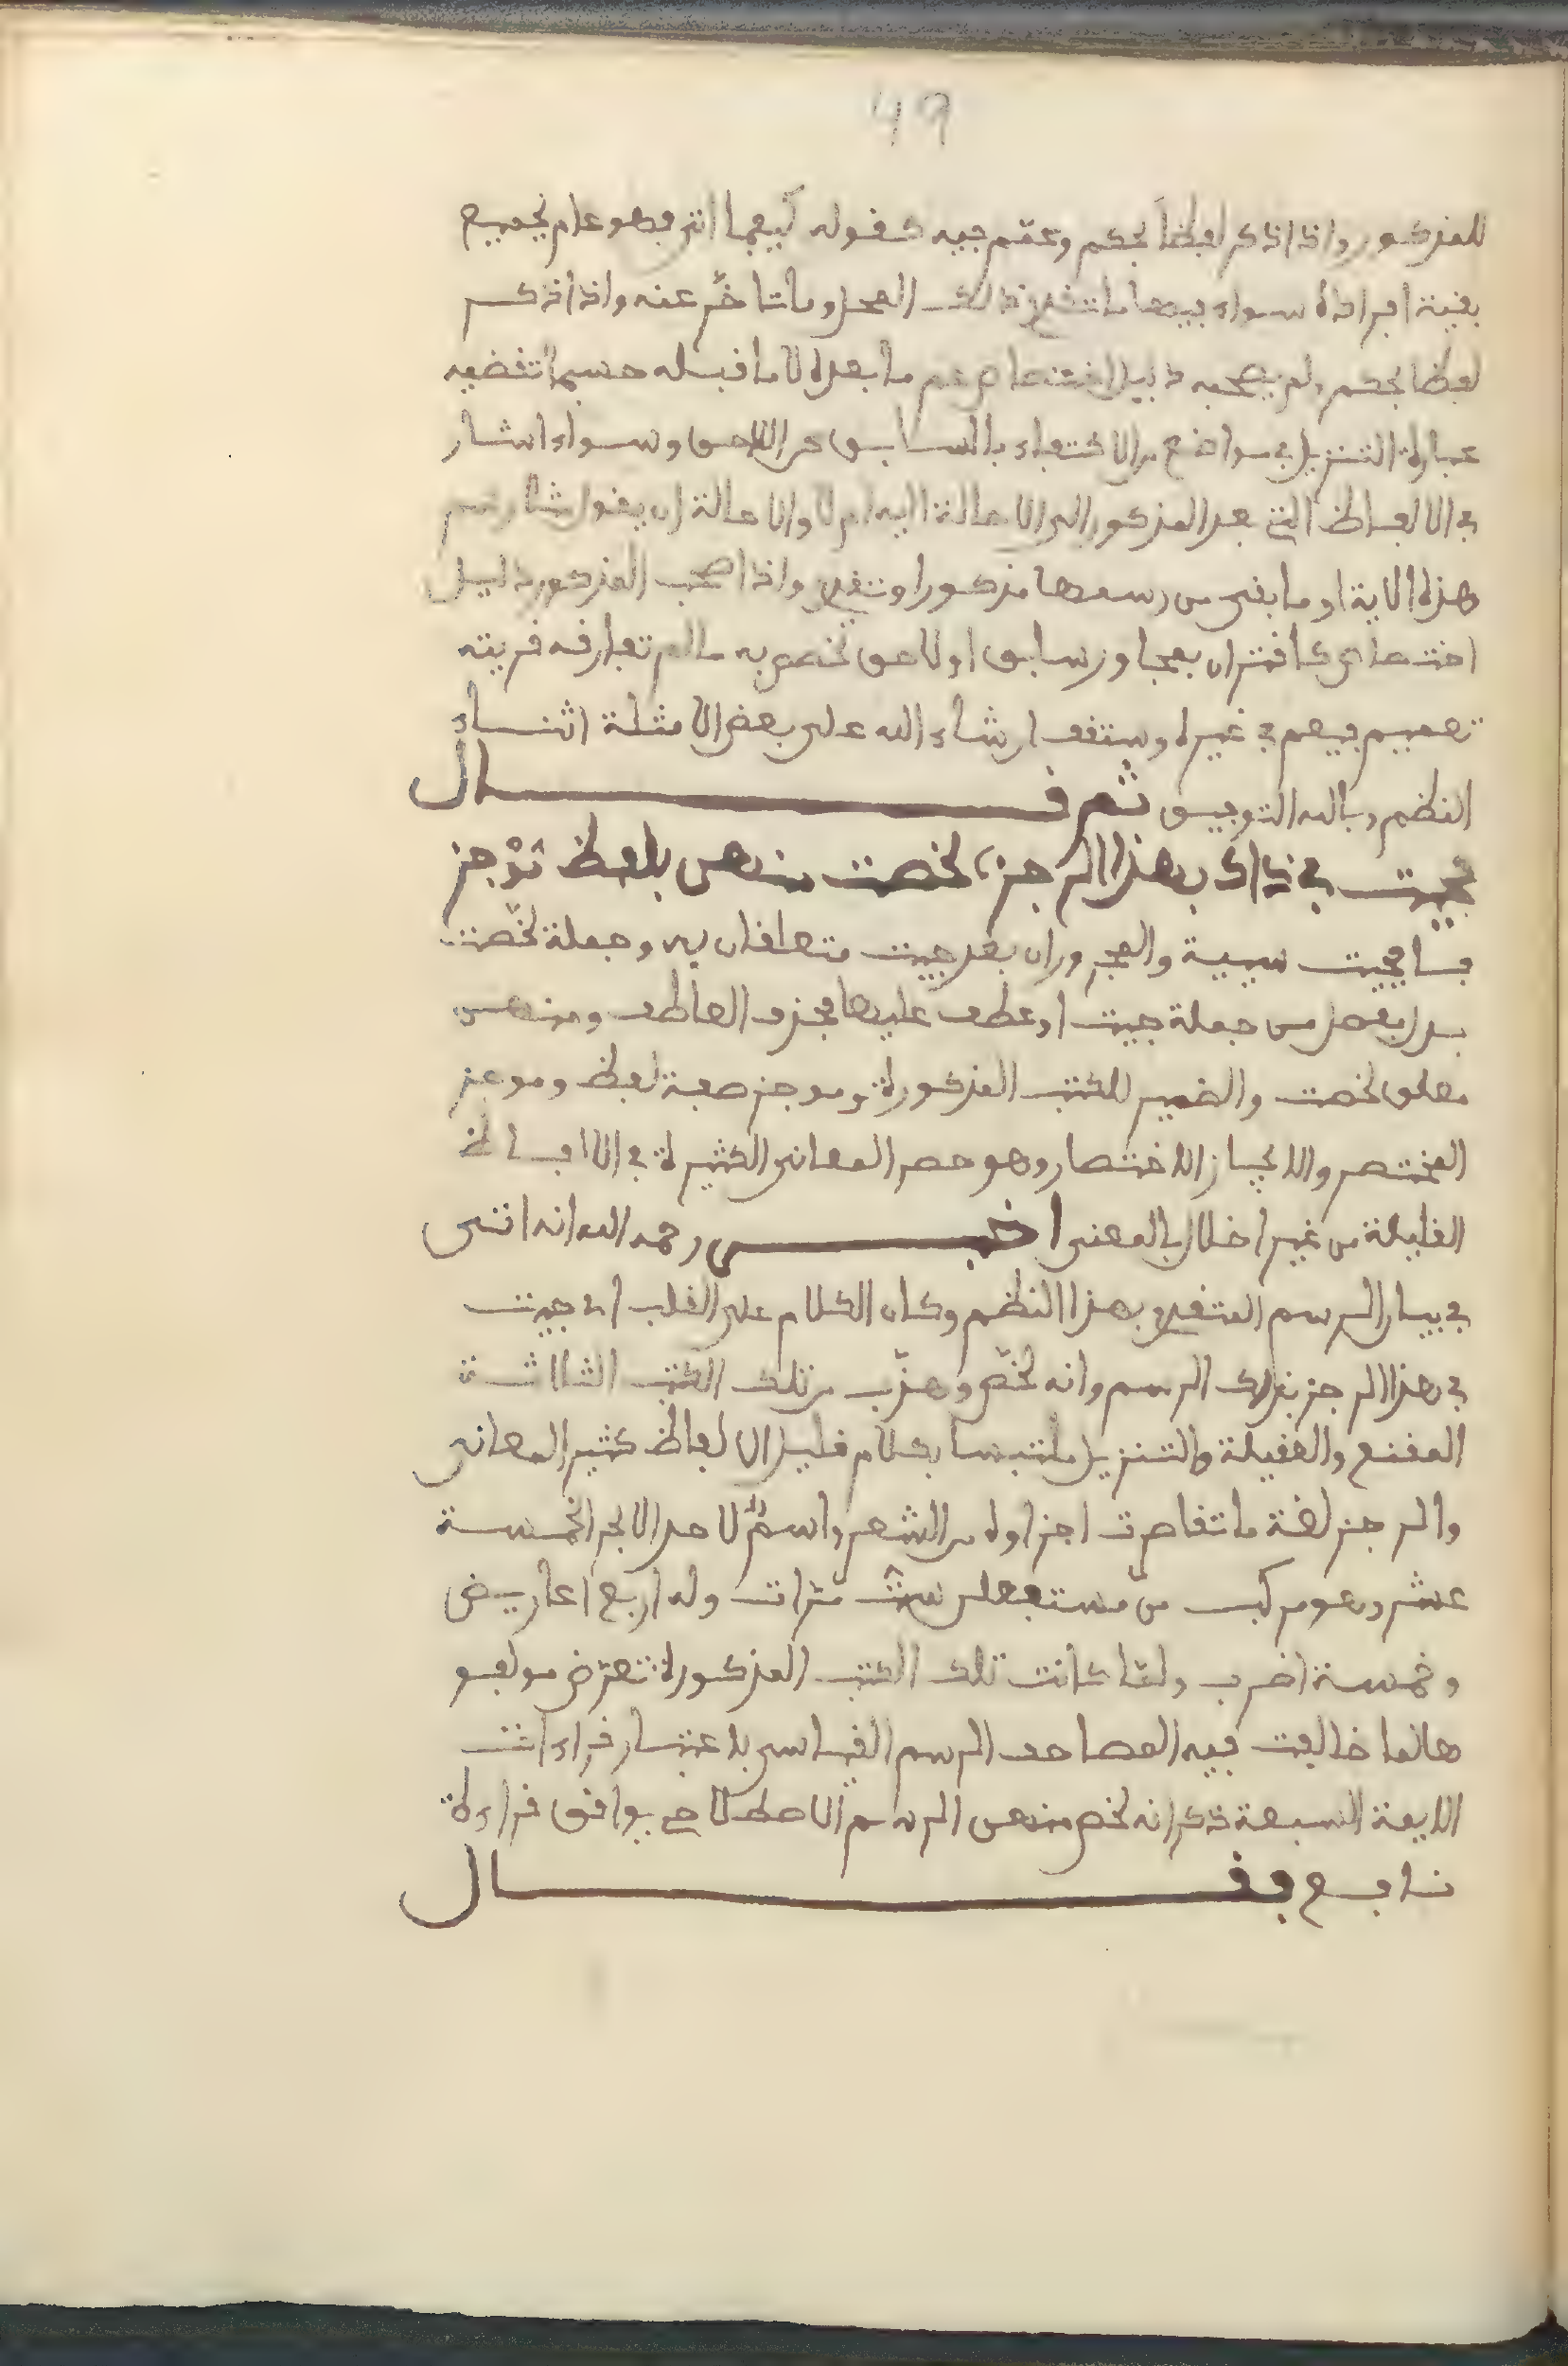 49
للمذكور واذا ذكر لفظا بحكم وعمم فيه كقوله كيفما اتى فهو عام بجميع
بقية افراده سواء فيها ما تقدم ذلك المحل وما تاخر عنه واذا ذكر
لفظا بحكم ولم يصحبه دليل اختصاص عم ما بعده لا ما قبله حسبما تقضيه
عبارة التنزيل في مواضع من الاكتفاء بالسابق عن اللاحق وسواء اشار
في الالفاظ التي بعد المذكور الى الاحالة اليه ام لا والاحالة ان يقول شا رسم
هذه الاية او ما بقى من رسمها مذكورا وتقدم واذا صحب المذكور دليل
اختصاص كاقتران بمجاور سابق او لاحق تخصص به ما لم تعارفه قرينة
تعميم فيعم في غيره وستقف ان شاء الله على بعض الامثلة اثناء
النظم وبالله التوفيق ثم قال
فجيت في ذاك بهذا الرجز، لخصت منهن بلفظ موجز
فا فجيت سببية والمجروران بعد جيت متعلقان به وجملة لخصت
بدل مفصل من جملة جيت او عطف عليها بحذف العاطف ومنهن
معلق لخصت والضمير للكتب المذكورة وموجز صفة لفظ وموجز
المختصر والايجاز الاختصار وهو حصر المعاني الكثيرة في الالفاظ
القليلة من غير اخلال بالمعنى اخبر رحمه الله انه اتى
في بيان الرسم المتقدم بهذا النظم وكان الكلام على القلب اى جيت
في هذا الرجز بذلك الرسم وانه لخص وهذب من تلك الكتب الثلاثة
المقنع والعقيلة والتنزيل ملتبسا بكلام قليل الالفاظ كثير المعانى
والرجز لغة ما تقاصرت اجزاوه من الشعر واسم لاحد الابحر الخمسة
عشر وهو مركب من مستفعلن ست مرات وله اربع اعاريض
وخمسة اضرب ولما كانت تلك الكتب المذكورة تعرض مولفو
ها لما خالفت فيه المصاحف الرسم القياسى باعتبار قراءات
الايمة السبعة ذكر انه لخص منهن الرسم الاصطلاحي بوافق قراءة
نافع فقال